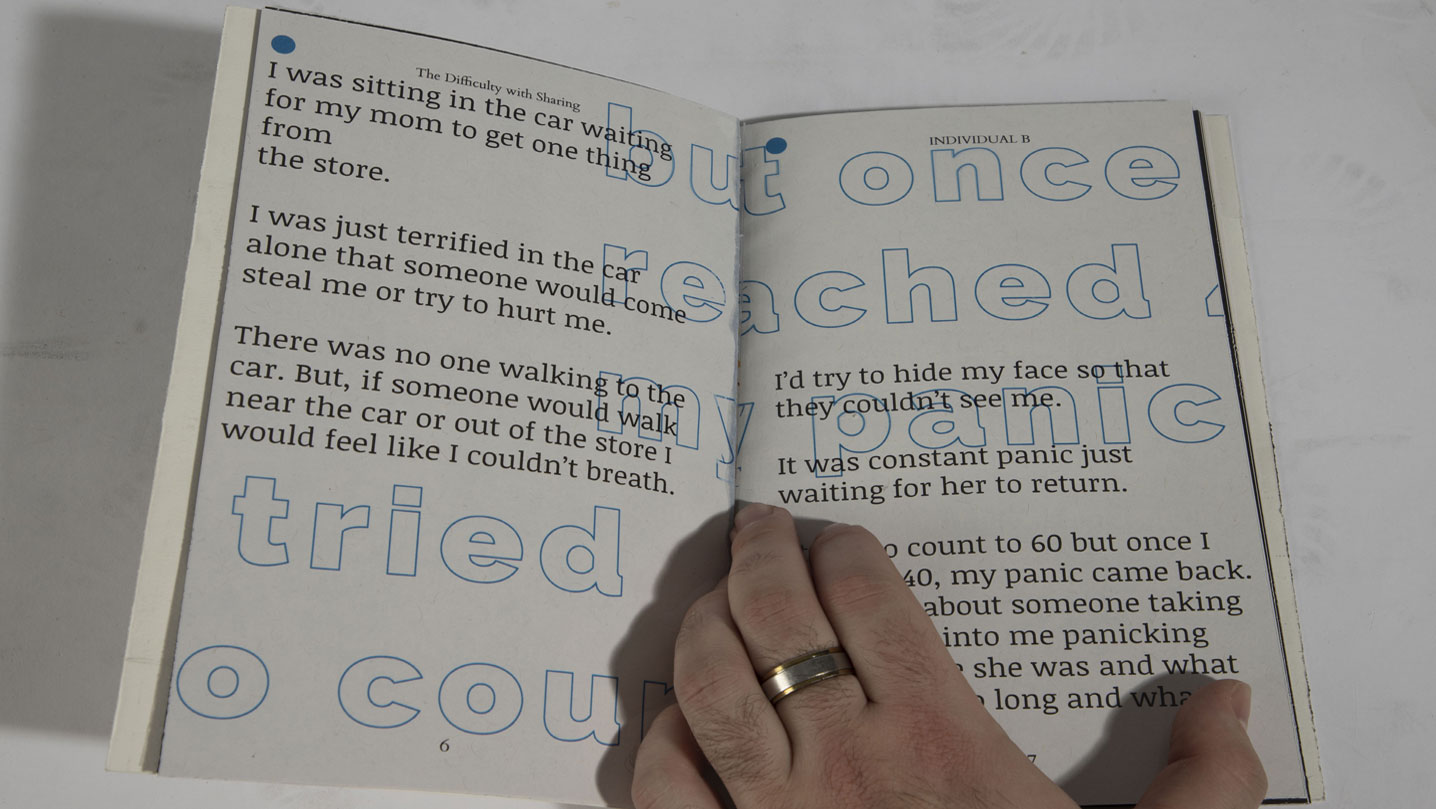 The Difficulty with Sharing
I was sitting in the car waiting
for my mom to get one thing
from
the store.
I was just terrified in the car
alone that someone would come
steal me or try to hurt me.
There was no one walking to the
car. But, if someone would walk
near the car or out of the store I
would feel like I couldn't breath.
tried
o cou
6
INDIVIDUAL B
but once
reached
my panic
I'd try to hide my face so that
they couldn't see me.
It was constant panic just
waiting for her to return.
count to 60 but once I
40, my panic came back.
about someone taking
into me panicking
she was and what
long and
7